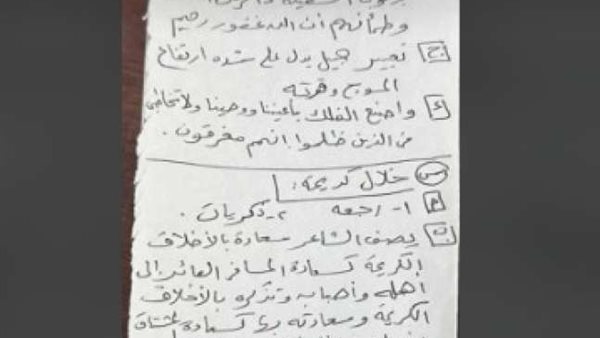 وطمأنهم أن الله غفور رحيم
ج تعبير جميل يدل على شدة ارتفاع
الموج وقوته
د واصنع الفلك بأعيننا ووحينا ولا تخاطبني
في الذين ظلموا انهم مغرقون .
س خلال كريمة :
م ١- رجعه ٢- ذكريات .
ب يصف الشاعر سعادة بالأخلاق
الكريمة كسعادة المسافر العائد إلى
اهله وأحبابه وتذكره بالأخلاق
الكريمة وسعادته بها كسعادة المشتاق